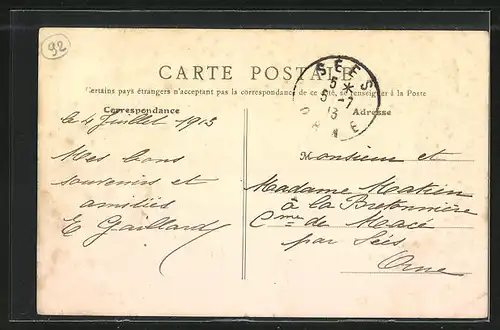 92
CARTE POSTALE
SÉES
5 *
5 - 7
13
ORNE
Certains pays étrangers n'acceptant pas la correspondance de ce côté, se renseigner à la Poste
Correspondance
Adresse
le 4 Juillet 1913
Mes bons
souvenirs et
amitiés
E Gaillard
Monsieur et
Madame Makien
à la Bretonnière
Cme de Macé
par Sées
Orne